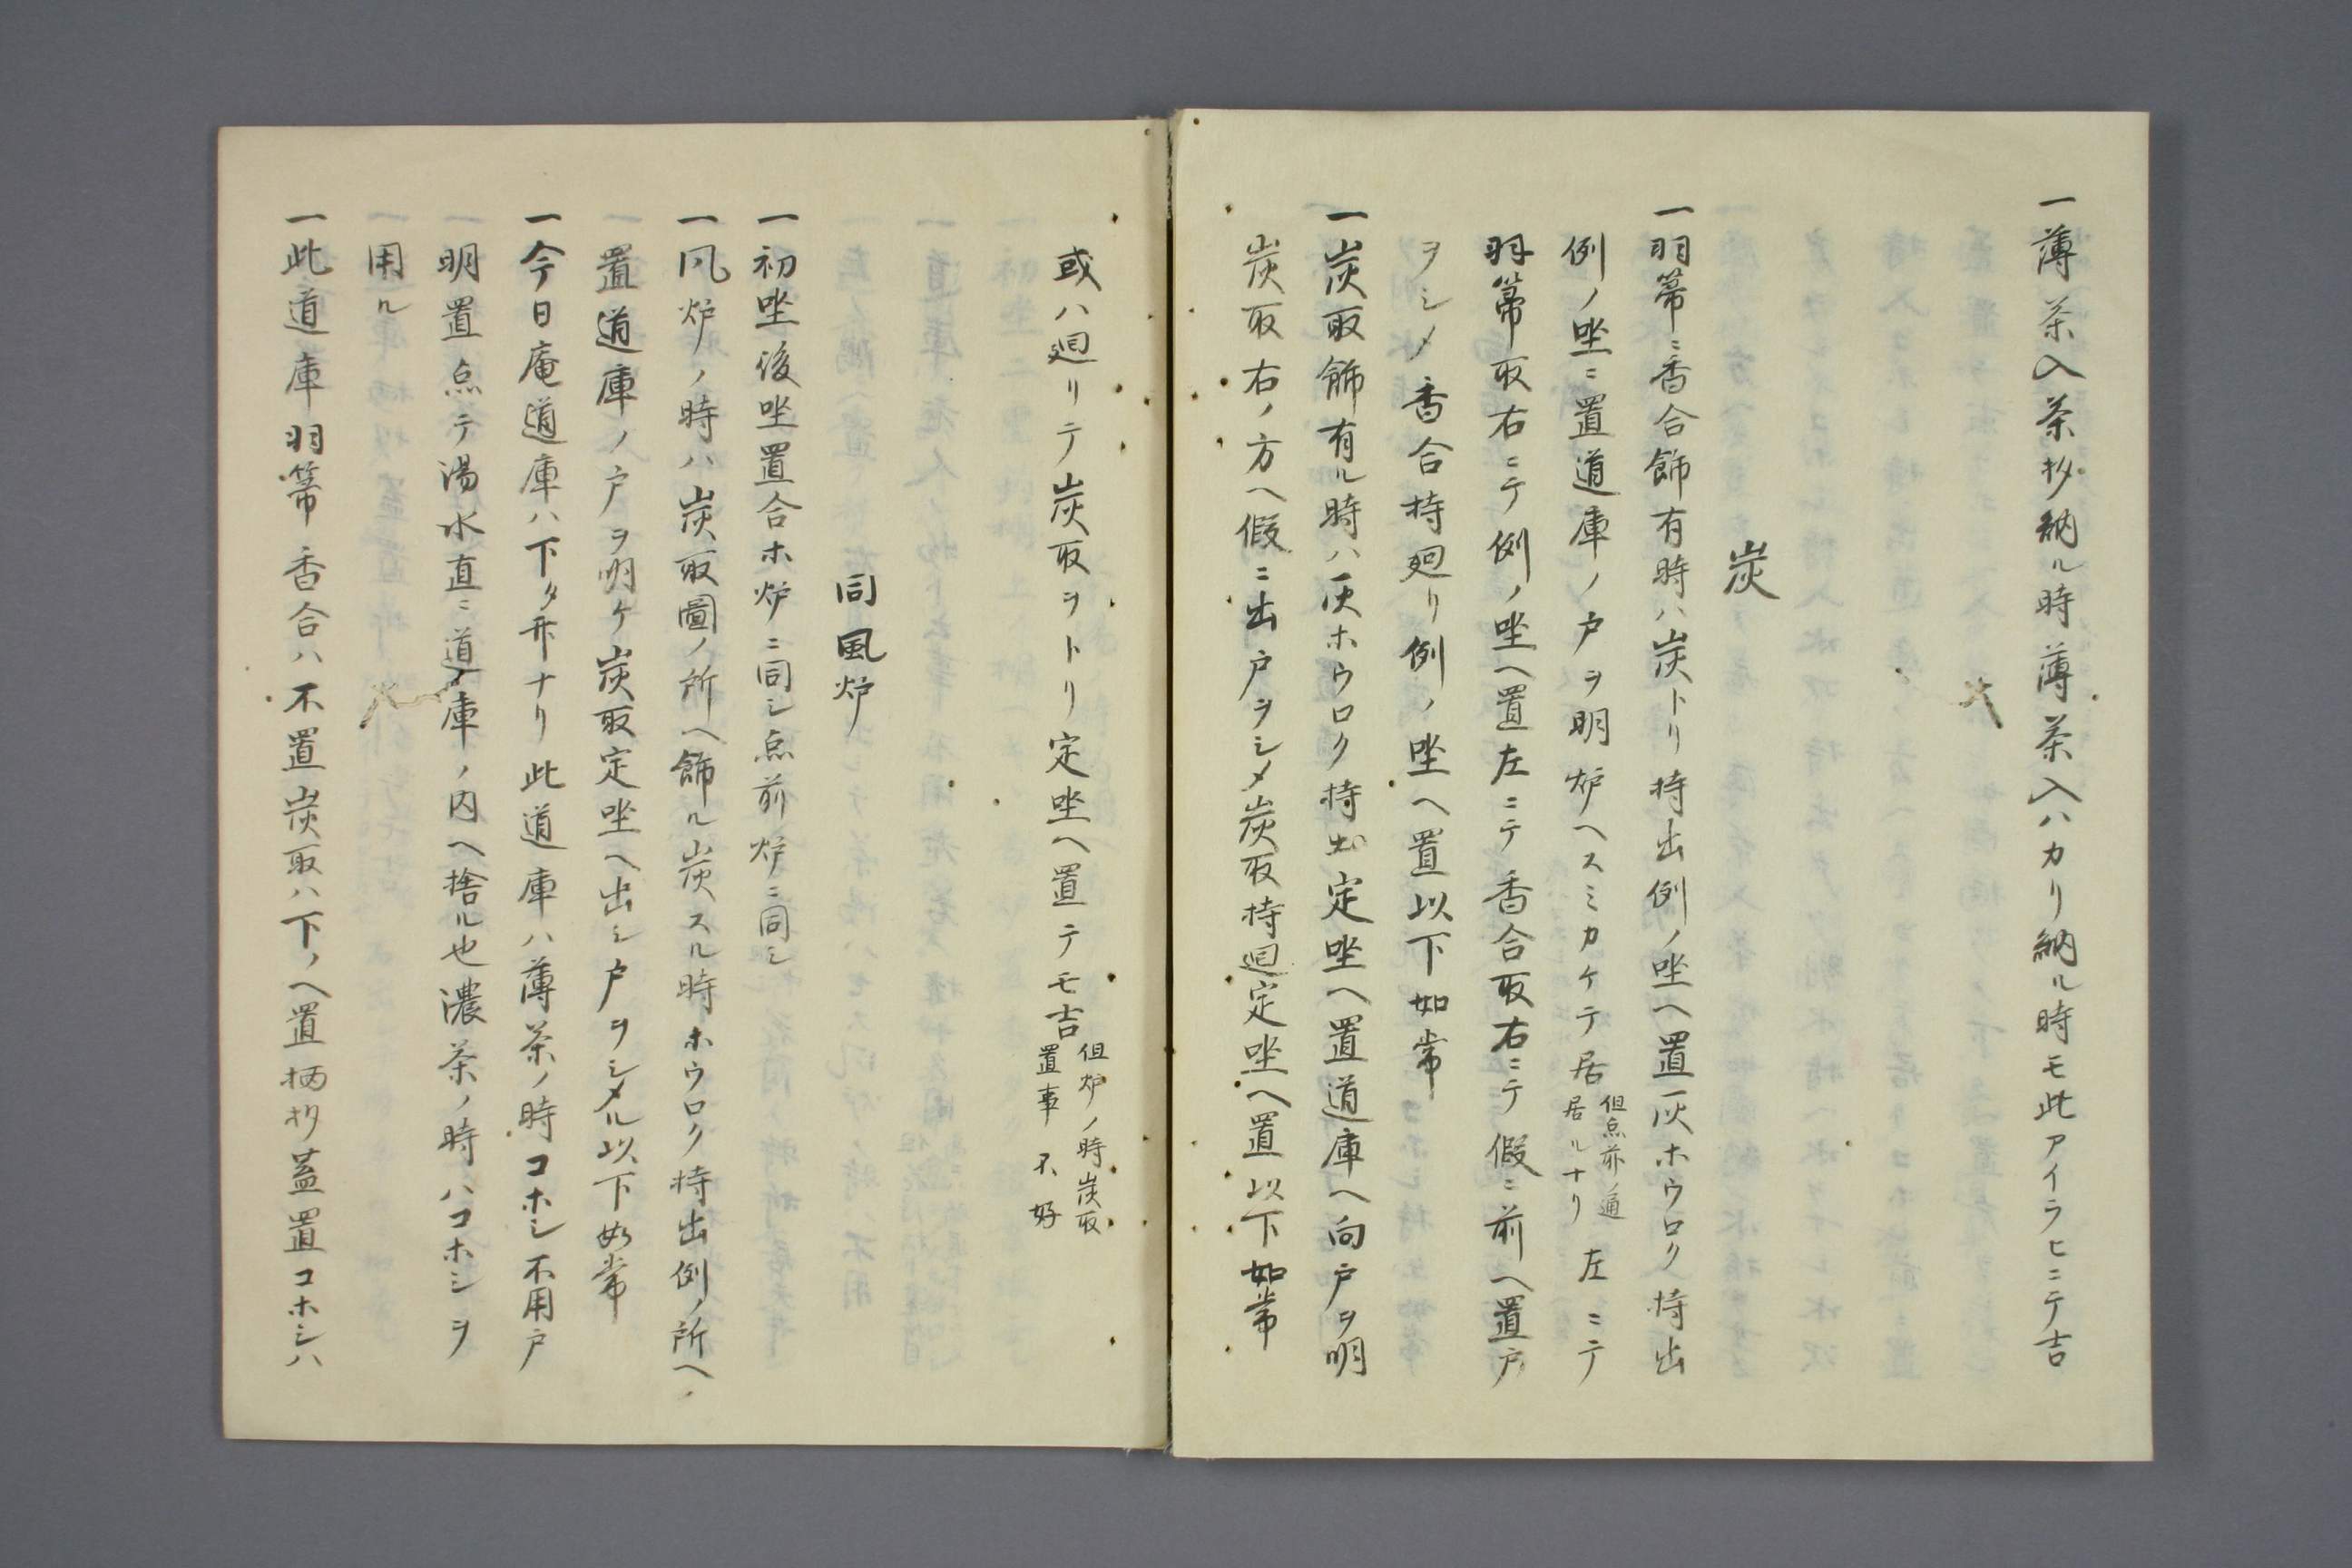 一薄茶入茶杓納ル時薄茶入ハカリ納ル時モ此アイラヒニテ吉
炭
一羽箒ニ香合飾有時ハ炭トリ持出例ノ坐ヘ置灰ホウロク持出
例ノ坐ニ置道庫ノ戸ヲ明炉ヘスミカケテ居
但点前ノ通
居ルナリ
左ニテ
羽箒取右ニテ例ノ坐ヘ置左ニテ香合取右ニテ假ニ前ヘ置戸
ヲシメ香合持廻リ例ノ坐ヘ置以下如常
一炭取飾有ル時ハ灰ホウロク持出定坐ヘ置道庫ヘ向戸ヲ明
炭取右ノ方ヘ假ニ出戸ヲシメ炭取持廻定坐ヘ置以下如常
或ハ廻リテ炭取ヲトリ定坐ヘ置テモ吉
但炉ノ時炭取
置事不好
同風炉
一初坐後坐置合ホ炉ニ同シ点前炉ニ同シ
一風炉ノ時ハ炭取圖ノ所ヘ飾ル炭スル時ホウロク持出例ノ所ヘ
置道庫ノ戸ヲ明ケ炭取定坐ヘ出シ戸ヲシメル以下如常
一今日庵道庫ハ下タ棚ナリ此道庫ハ薄茶ノ時コホシ不用戸
明置点テ湯水直ニ道庫ノ内ヘ捨ル也濃茶ノ時ハコホシヲ
用ル
一此道庫羽箒香合ハ不置炭取ハ下ノヘ置柄杓蓋置コホシハ